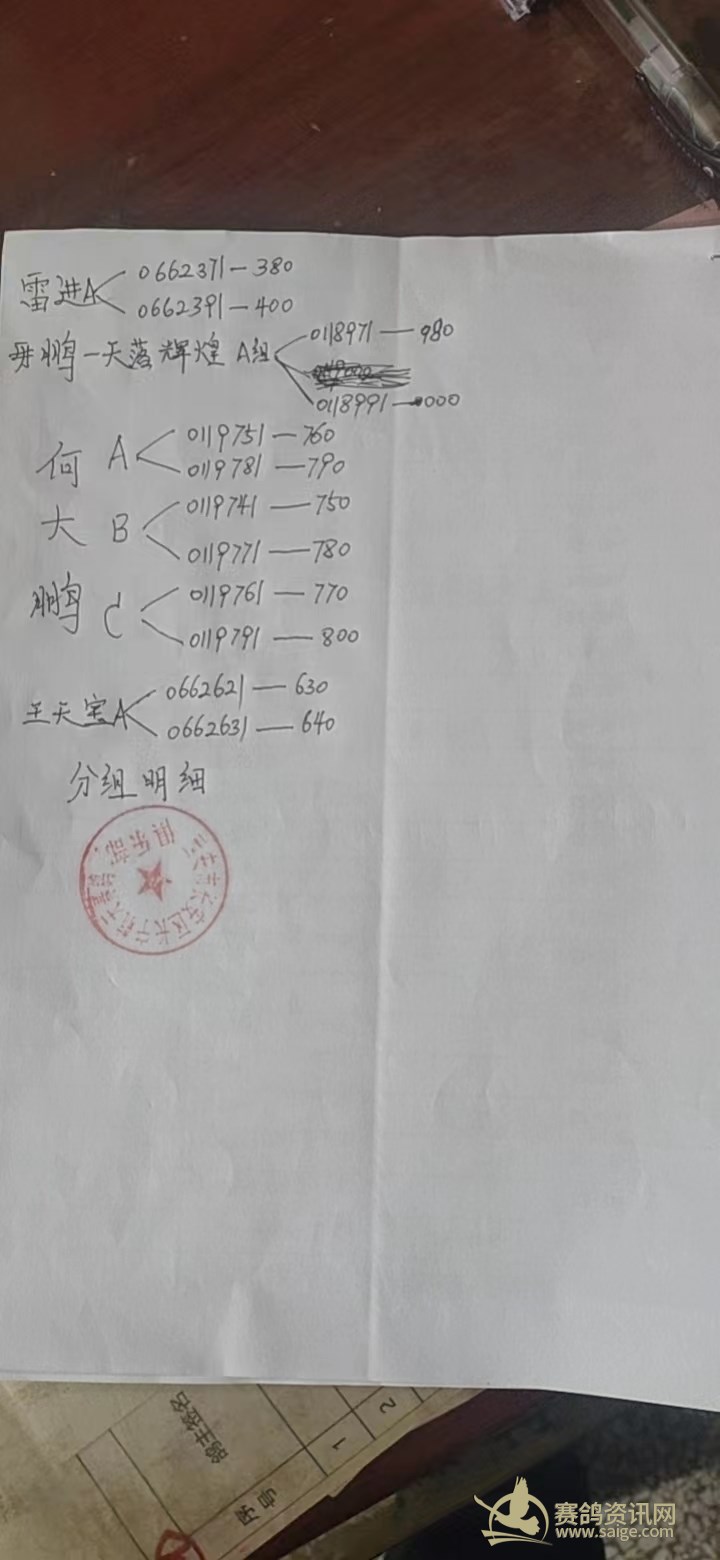 雷进A 0662371—380
0662391—400
毋鹏—天落辉煌 A组 0118971—980
0118991—000
何大鹏
A 0119751—760
0119781—790
B 0119741—750
0119771—780
C 0119761—770
0119791—800
王天宝A 0662621—630
0662631—640
分组明细
俱乐部
鸽主签名
序号
1
2
赛鸽资讯网
www.saige.com